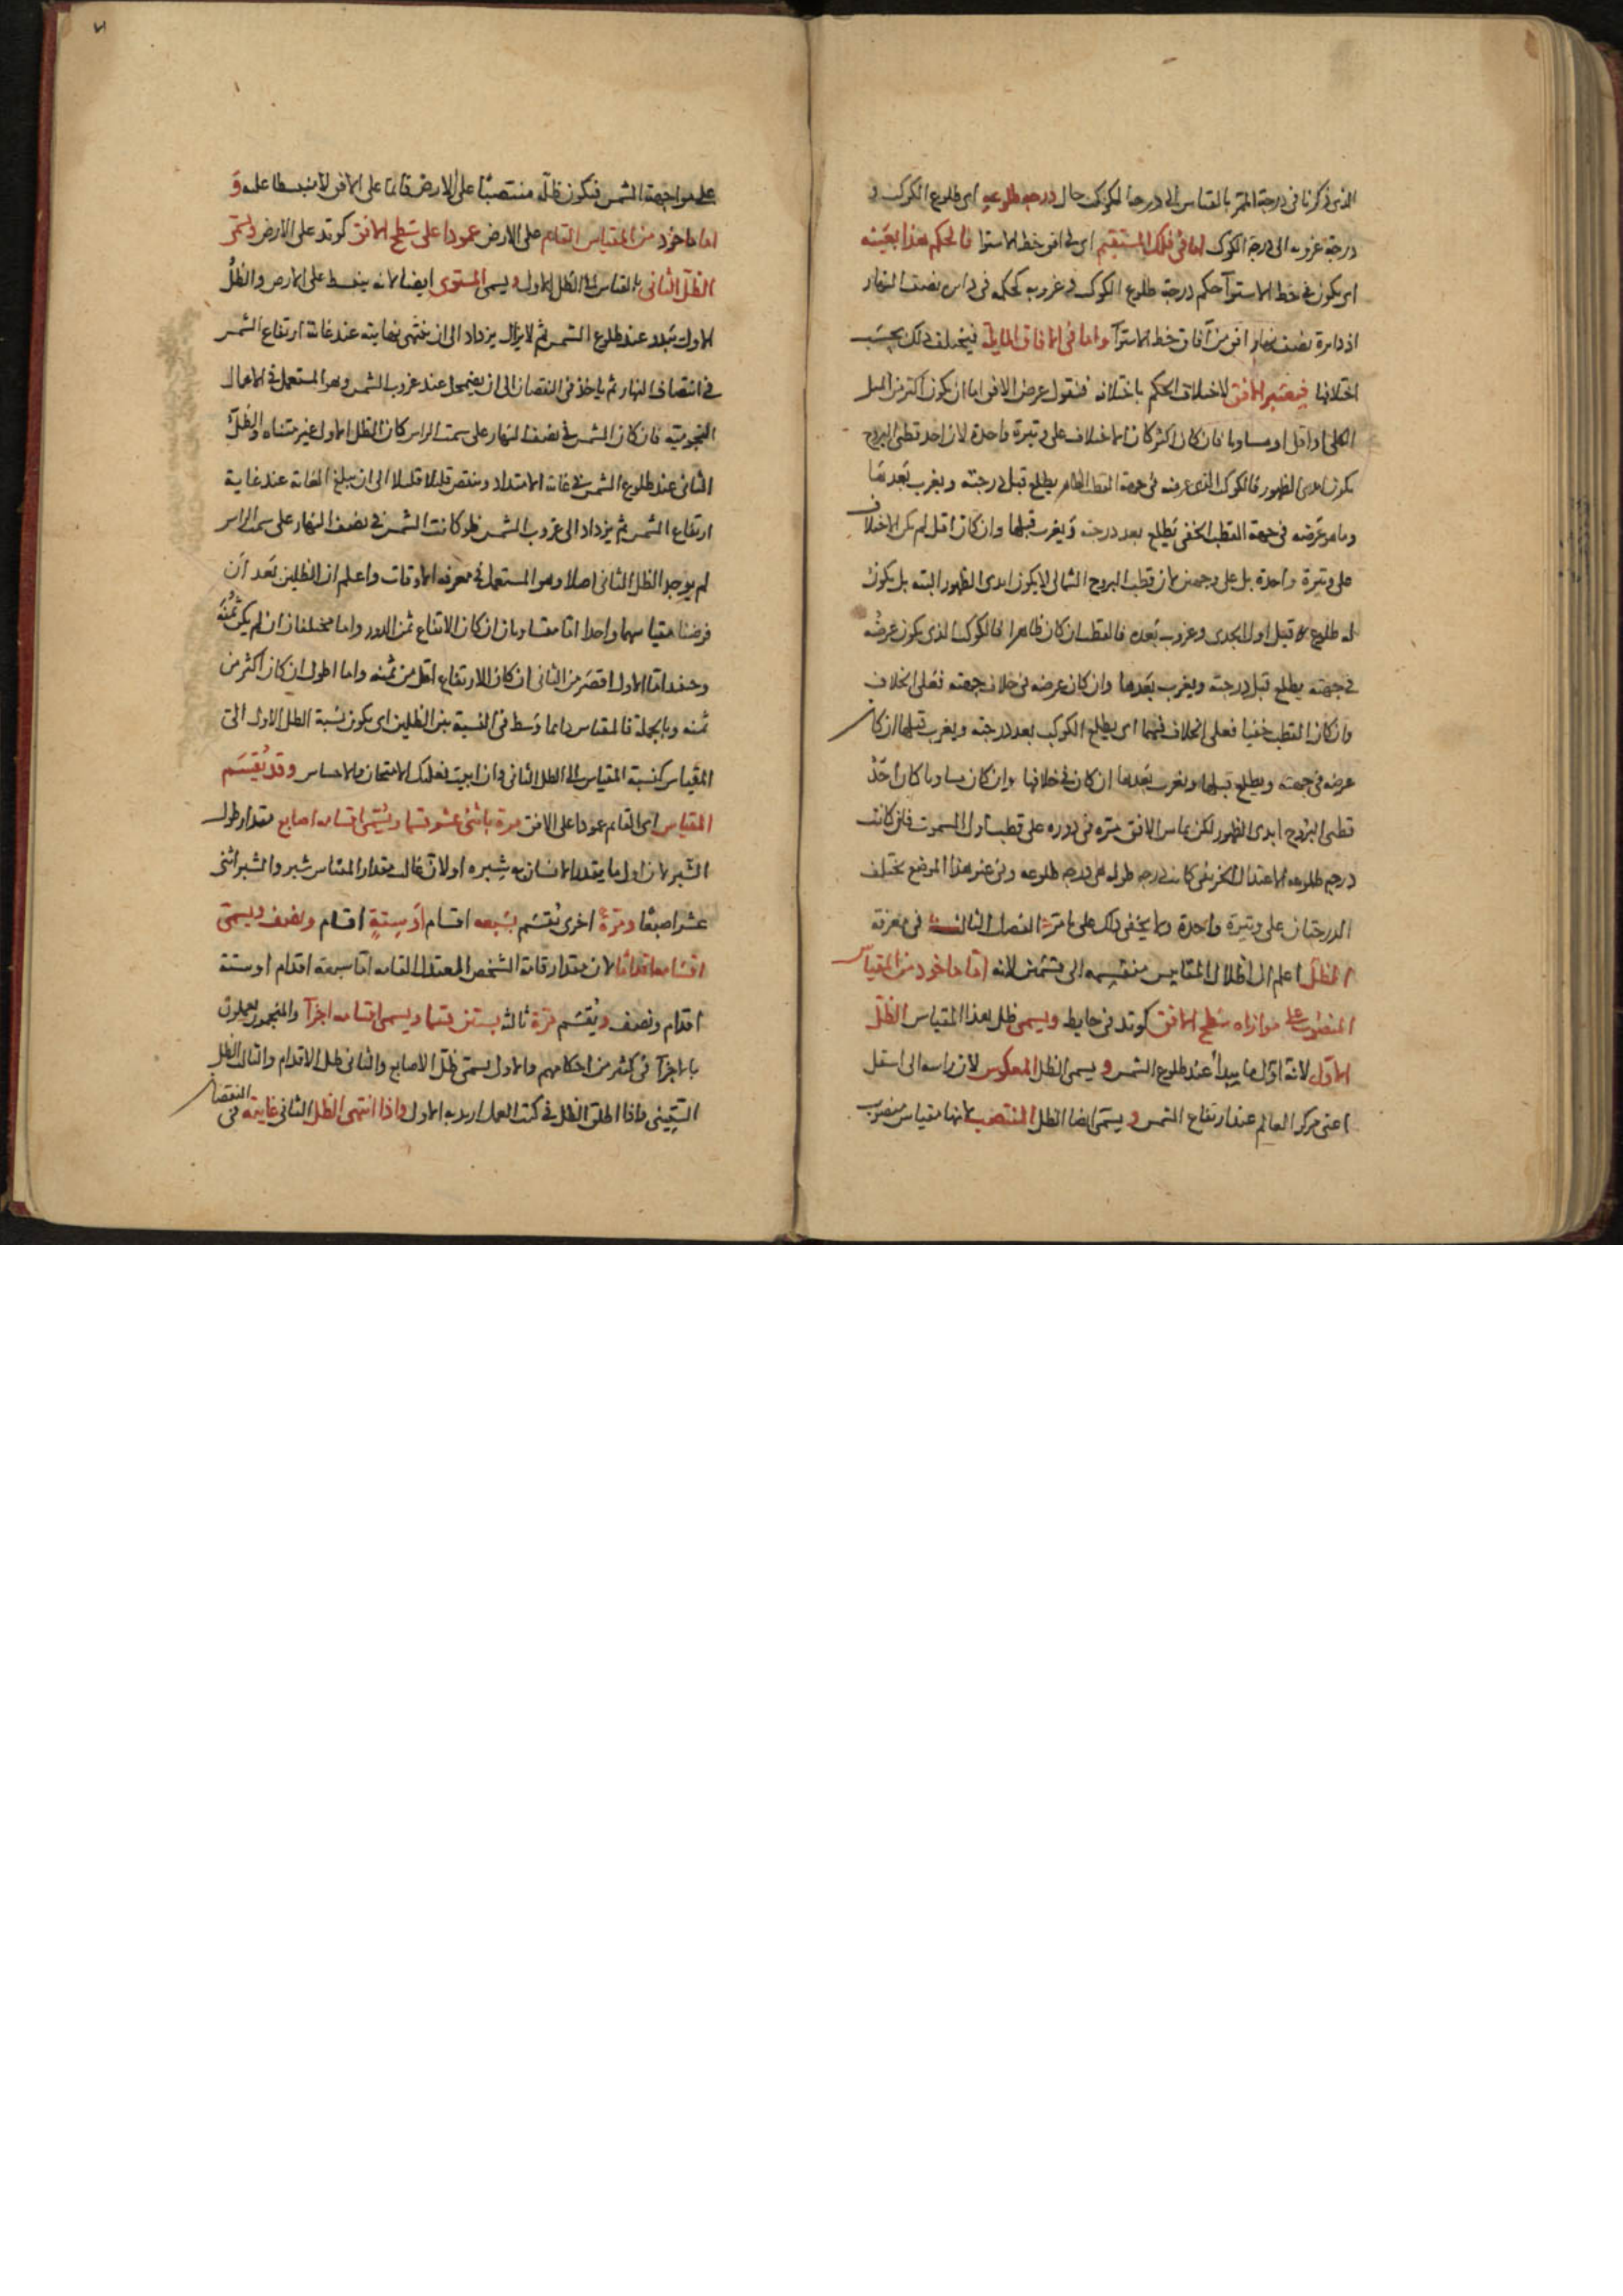 الذى ذكرنا فى درجة الممر بالقياس الى درجة الكوكب حال درجه طلوعه اى طلوع الكوكب و
درجة غروبه الى درجة الكوكب اما فى فلك المستقيم اى فى افق خط الاستوا فالحكم هذا بعينه
اى يكون فى خط الاستوآ حكم درجة طلوع الكوكب و غروبه كحكمه فى دائرة نصف النهار
اذ دايرة نصف نهار افق من آفاق خط الاستوآ واما فى الافاق المايلة فيختلف ذلك بحسب
اختلافها فيعتبر الافق لاختلاف الحكم باختلافه فنقول عرض الافق اما ان يكون اكثر من الميل
الكلى او اقل او مساويا فان كان اكثر كان الاختلاف على وتيرة واحدة لان احد قطبى البروج
يكون ابدى الظهور فالكوكب الذى عرضه فى جهة القطب الظاهر يطلع قبل درجته ويغرب بعدها
وما هو عرضه فى جهة القطب الخفى يطلع بعد درجته ويغرب قبلها وان كان اقل لم يكن الاختلاف
على وتيرة واحدة بل على وجهين لان قطب البروج الشمالى لا يكون ابدى الظهور البته بل يكون
له طلوع قبل اول الجدى وغروب بعده فالقطب ان كان ظاهرا فالكوكب الذى يكون عرضه
فى جهته يطلع قبل درجته ويغرب بعدها وان كان عرضه فى خلاف جهته فعلى الخلاف
وان كان القطب خفيا فعلى الخلاف فيهما اى يطلع الكوكب بعد درجته ويغرب قبلها ان كان
عرضه فى جهته ويطلع قبلها ويغرب بعدها ان كان فى خلافها وان كان مساويا كان احد
قطبى البروج ابدى الظهور لكن يماس الافق مرة فى دوره على قطب اول السموت فان كانت
درجه طلوعه الاعتدال الخريفى كانت درجه طوله هى درجه طلوعه وفى غير هذا الموضع يختلف
الدرجتان على وتيرة واحدة ولا يخفى ذلك على ما مر الفصل الثالث فى معرفة
الظل اعلم ان اظلال المقاييس منقسمه الى قسمين لانه اما ماخوذ من المقياس
المنصوب على موازاه سطح الافق كوتد فى حايط ويسمى ظل هذا المقياس الظل
الاول لانه اول ما يبدأ عند طلوع الشمس ويسمى الظل المعكوس لان راسه الى اسفل
اعنى مركز العالم عند ارتفاع الشمس ويسمى ايضا الظل المنتصب لانها مقياس منصوب
على مواجهة الشمس فيكون ظله منتصبًا على الارض قائما على الافق لا منبسطا عليه و
اما ماخوذ من المقياس القايم على الارض عمودا على سطح الافق كوتد على الارض ويسمى
الظل الثانى بالقياس الى الظل الاول ويسمى المستوى ايضا لانه ينبسط على الارض والظل
الاول يتبدد عند طلوع الشمس ثم لا يزال يزداد الى ان ينتهى نهايته عند غاية ارتفاع الشمس
فى انتصاف النهار ثم ياخذ فى النقصان الى ان يضمحل عند غروب الشمس وهو المستعمل فى الاعمال
النجومية فان كان الشمس فى نصف النهار على سمت الراس كان الظل الاول غير متناه والظل
الثانى عند طلوع الشمس فى غاية الامتداد وينتقص قليلا قليلا الى ان يبلغ الغاية عند غاية
ارتفاع الشمس ثم يزداد الى غروب الشمس فلو كانت الشمس فى نصف النهار على سمت الراس
لم يوجد الظل الثانى اصلا وهو المستعمل فى معرفة الاوقات واعلم ان الظلين بعد ان
فرضنا مقياسهما واحدا اما متساويان ان كان الارتفاع ثمن الدور واما مختلفان ان لم يكن ثمنه
وحينئذ اما الاول اقصر من الثانى ان كان الارتفاع اقل من ثمنه واما اطول ان كان اكثر من
ثمنه وبالجملة فالمقياس دائما وسط فى النسبة بين الظلين اى يكون نسبة الظل الاول الى
المقياس كنسبة المقياس الى الظل الثانى وان ابيت فعليك الامتحان والاحساس وقد يقسم
المقياس اى القايم عمودا على الافق مرة باثنى عشر قسما ويسمى اقسامه اصابع مقدار طول
الشبر لان اول ما يقدر الانسان به شبره او لان غالب مقدار المقياس شبر والشبر اثنى
عشر اصبعًا ومرة اخرى يقسم بسبعه اقسام او ستة اقسام ونصف ويسمى
اقسامه اقداما لان مقدار قامة الشخص المعتدل القامه اما سبعة اقدام او ستة
اقدام ونصف ويقسم مرة ثالثه بستين قسما ويسمى اقسامه اجزآ والمنجمون يعملون
بالاجزآ فى كثير من احكامهم والاول يسمى ظل الاصابع والثانى ظل الاقدام والثالث الظل
الستينى واذا اطلق الظل فى كتب العمل اريد به الاول واذا انتهى الظل الثانى غايته فى النقصان